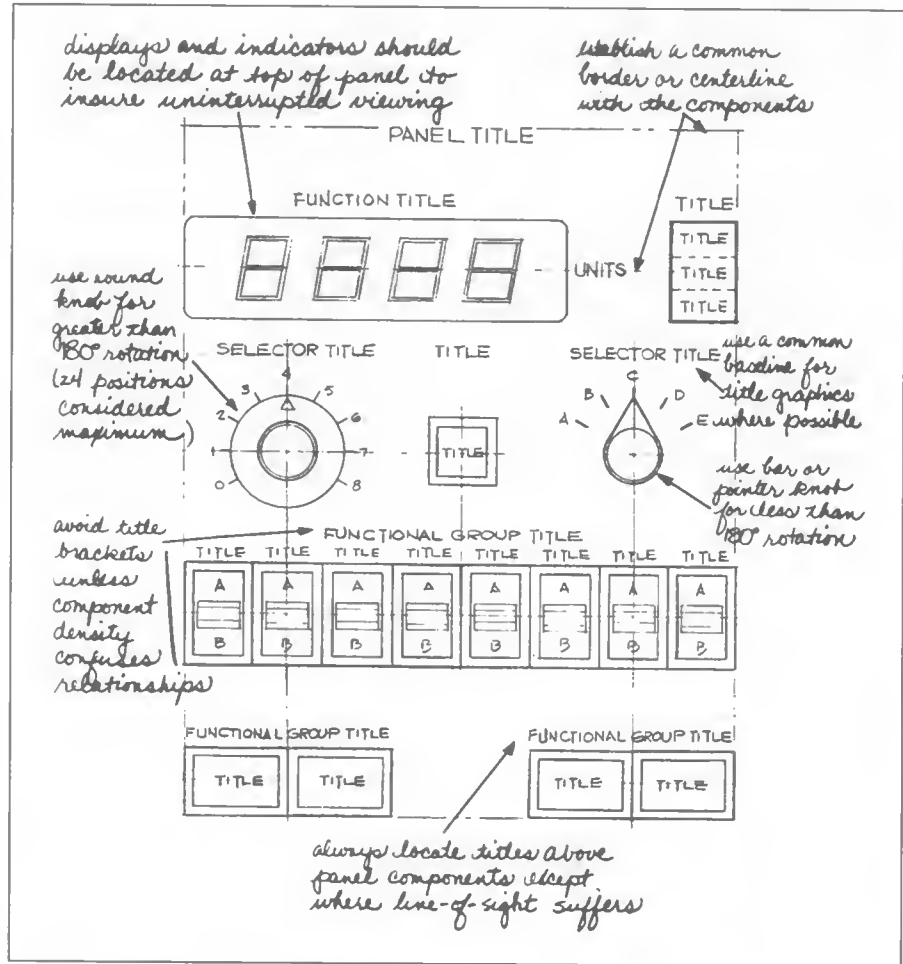 displays and indicators should
be located at top of panel to
insure uninterrupted viewing
establish a common
border or centerline
with the components
PANEL TITLE
FUNCTION TITLE
TITLE
TITLE
TITLE
TITLE
UNITS
use round
knob for
greater than
180° rotation
(24 positions
considered
maximum)
SELECTOR TITLE
0 1 2 3 4 5 6 7 8
TITLE
TITLE
SELECTOR TITLE
A B C D E
use a common
baseline for
title graphics
where possible
use bar or
pointer knob
for less than
180° rotation
avoid title
brackets
unless
component
density
confuses
relationships
FUNCTIONAL GROUP TITLE
TITLE TITLE TITLE TITLE TITLE TITLE TITLE TITLE
A A A A A A A A
B B B B B B B B
FUNCTIONAL GROUP TITLE
TITLE TITLE
FUNCTIONAL GROUP TITLE
TITLE TITLE
always locate titles above
panel components except
where line-of-sight suffers